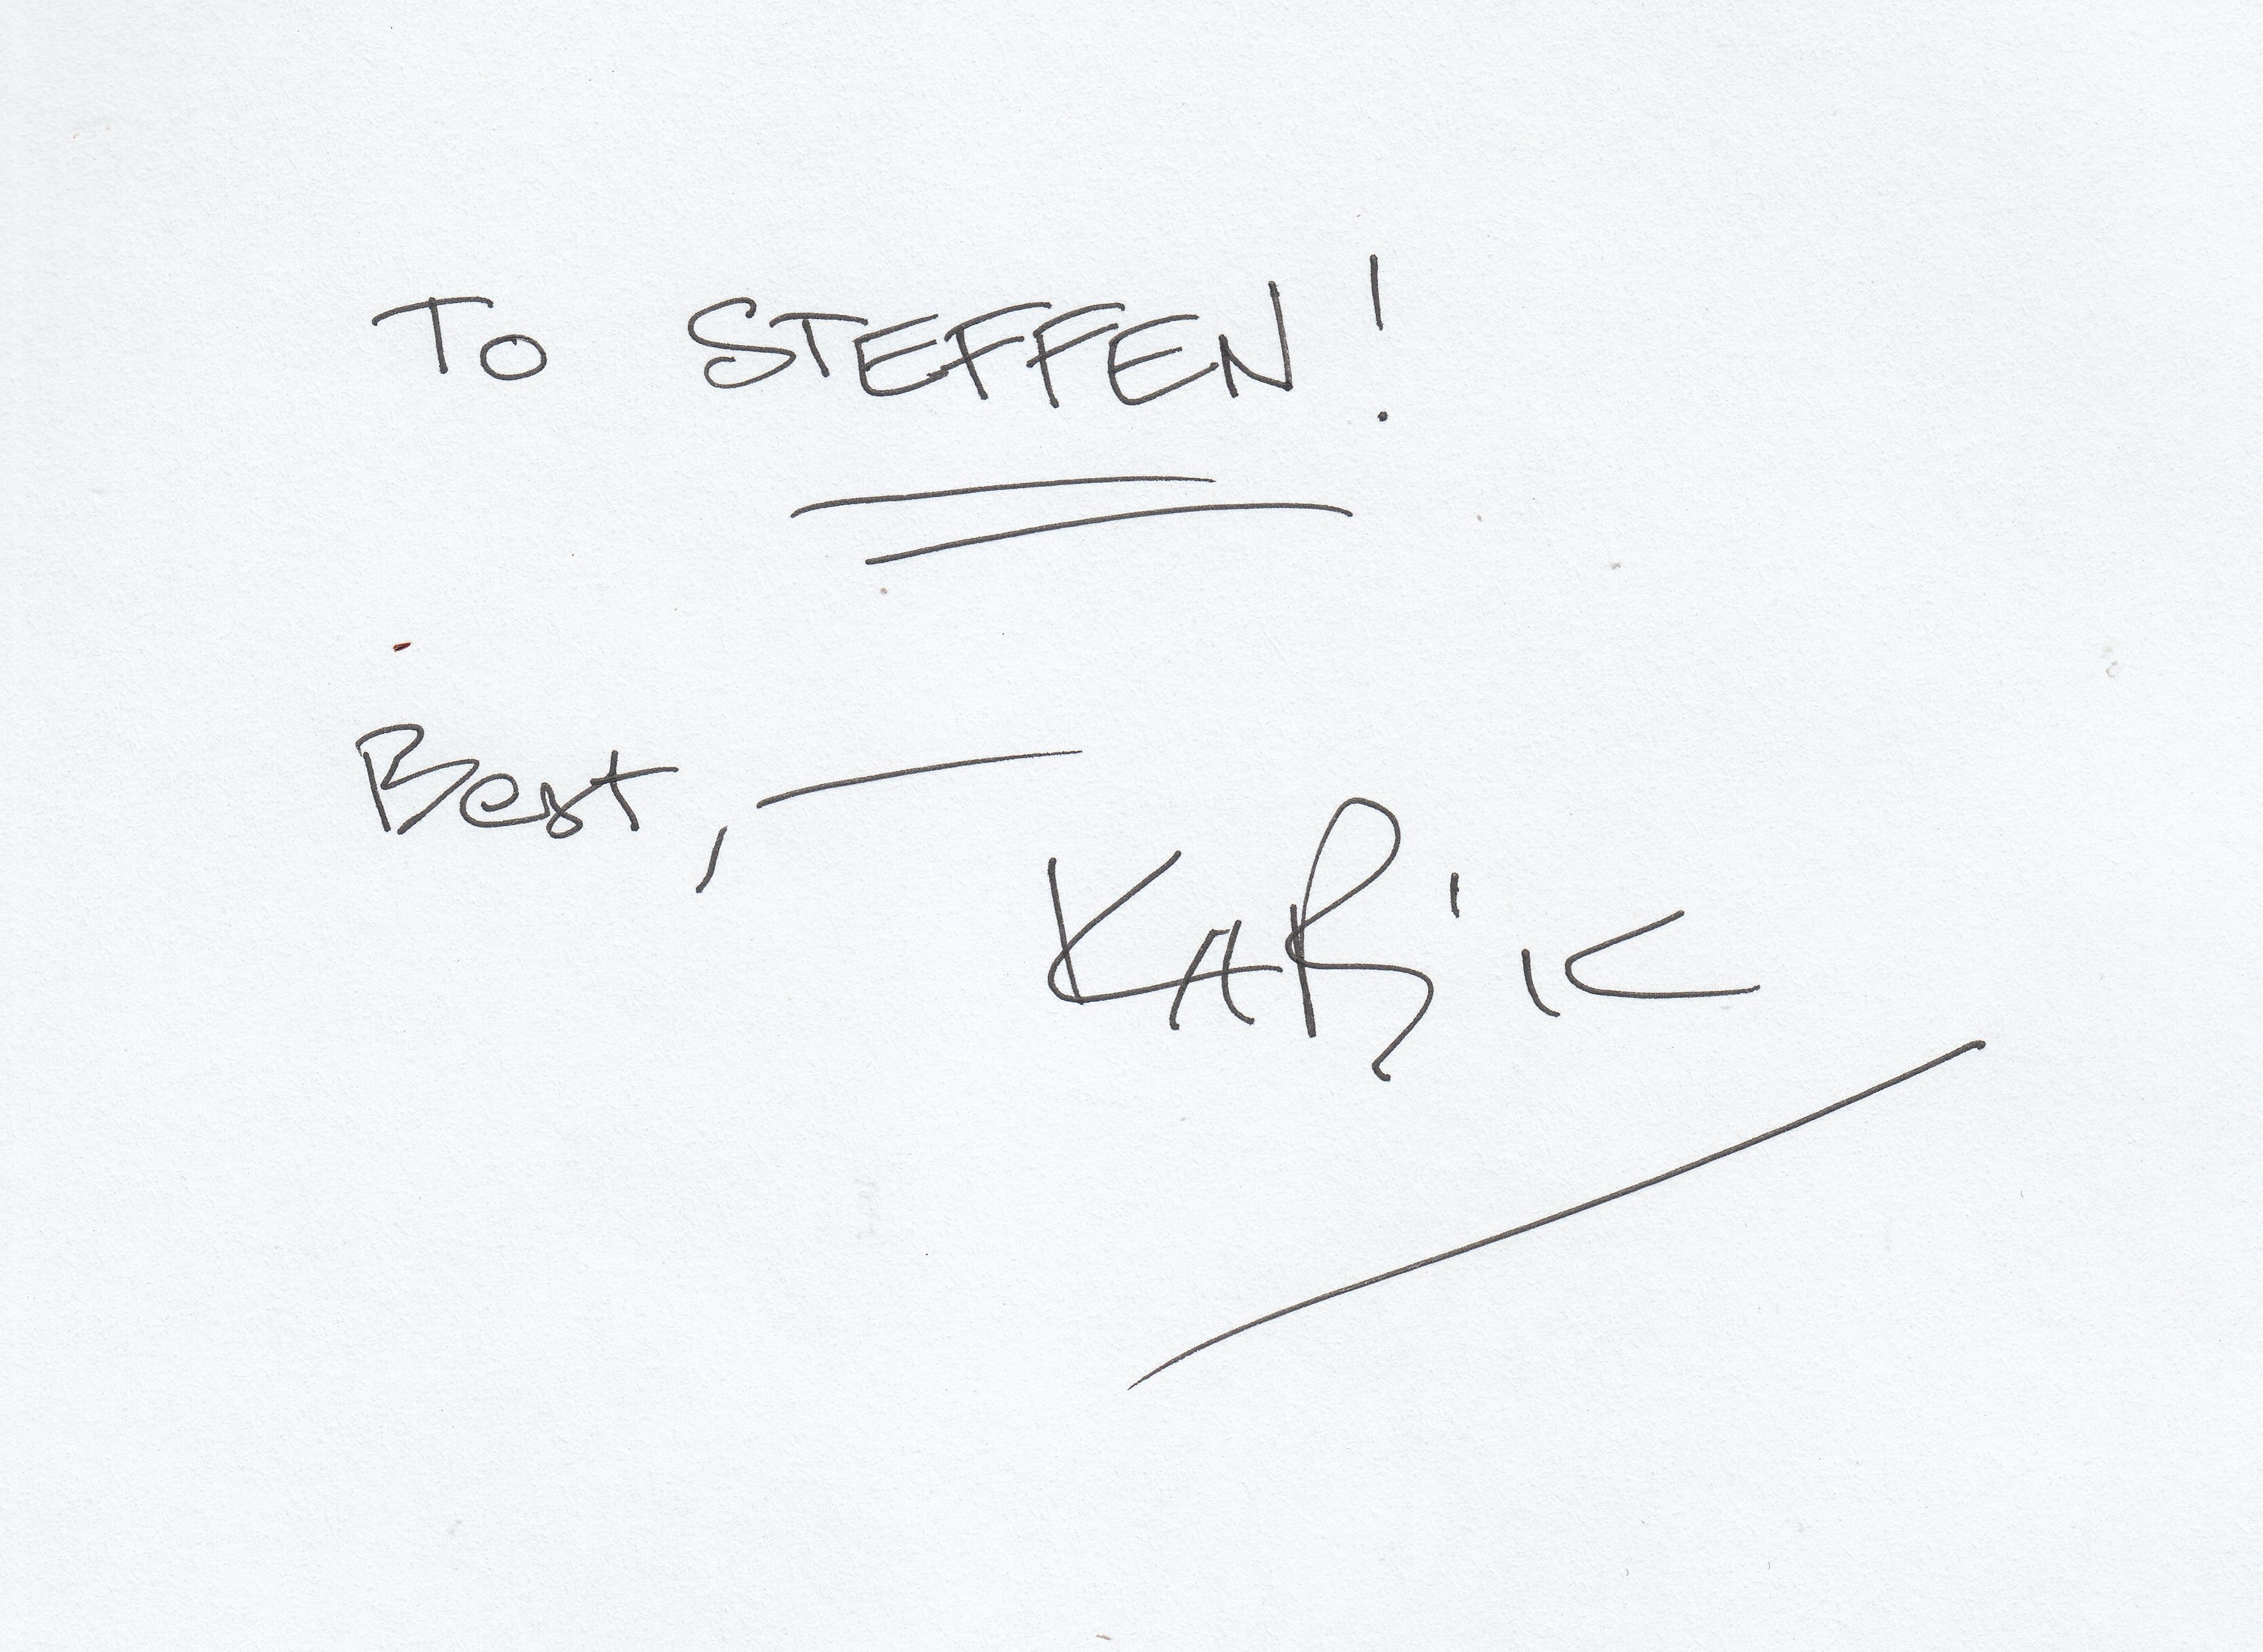 To STEFFEN!
Best, —
KARiK